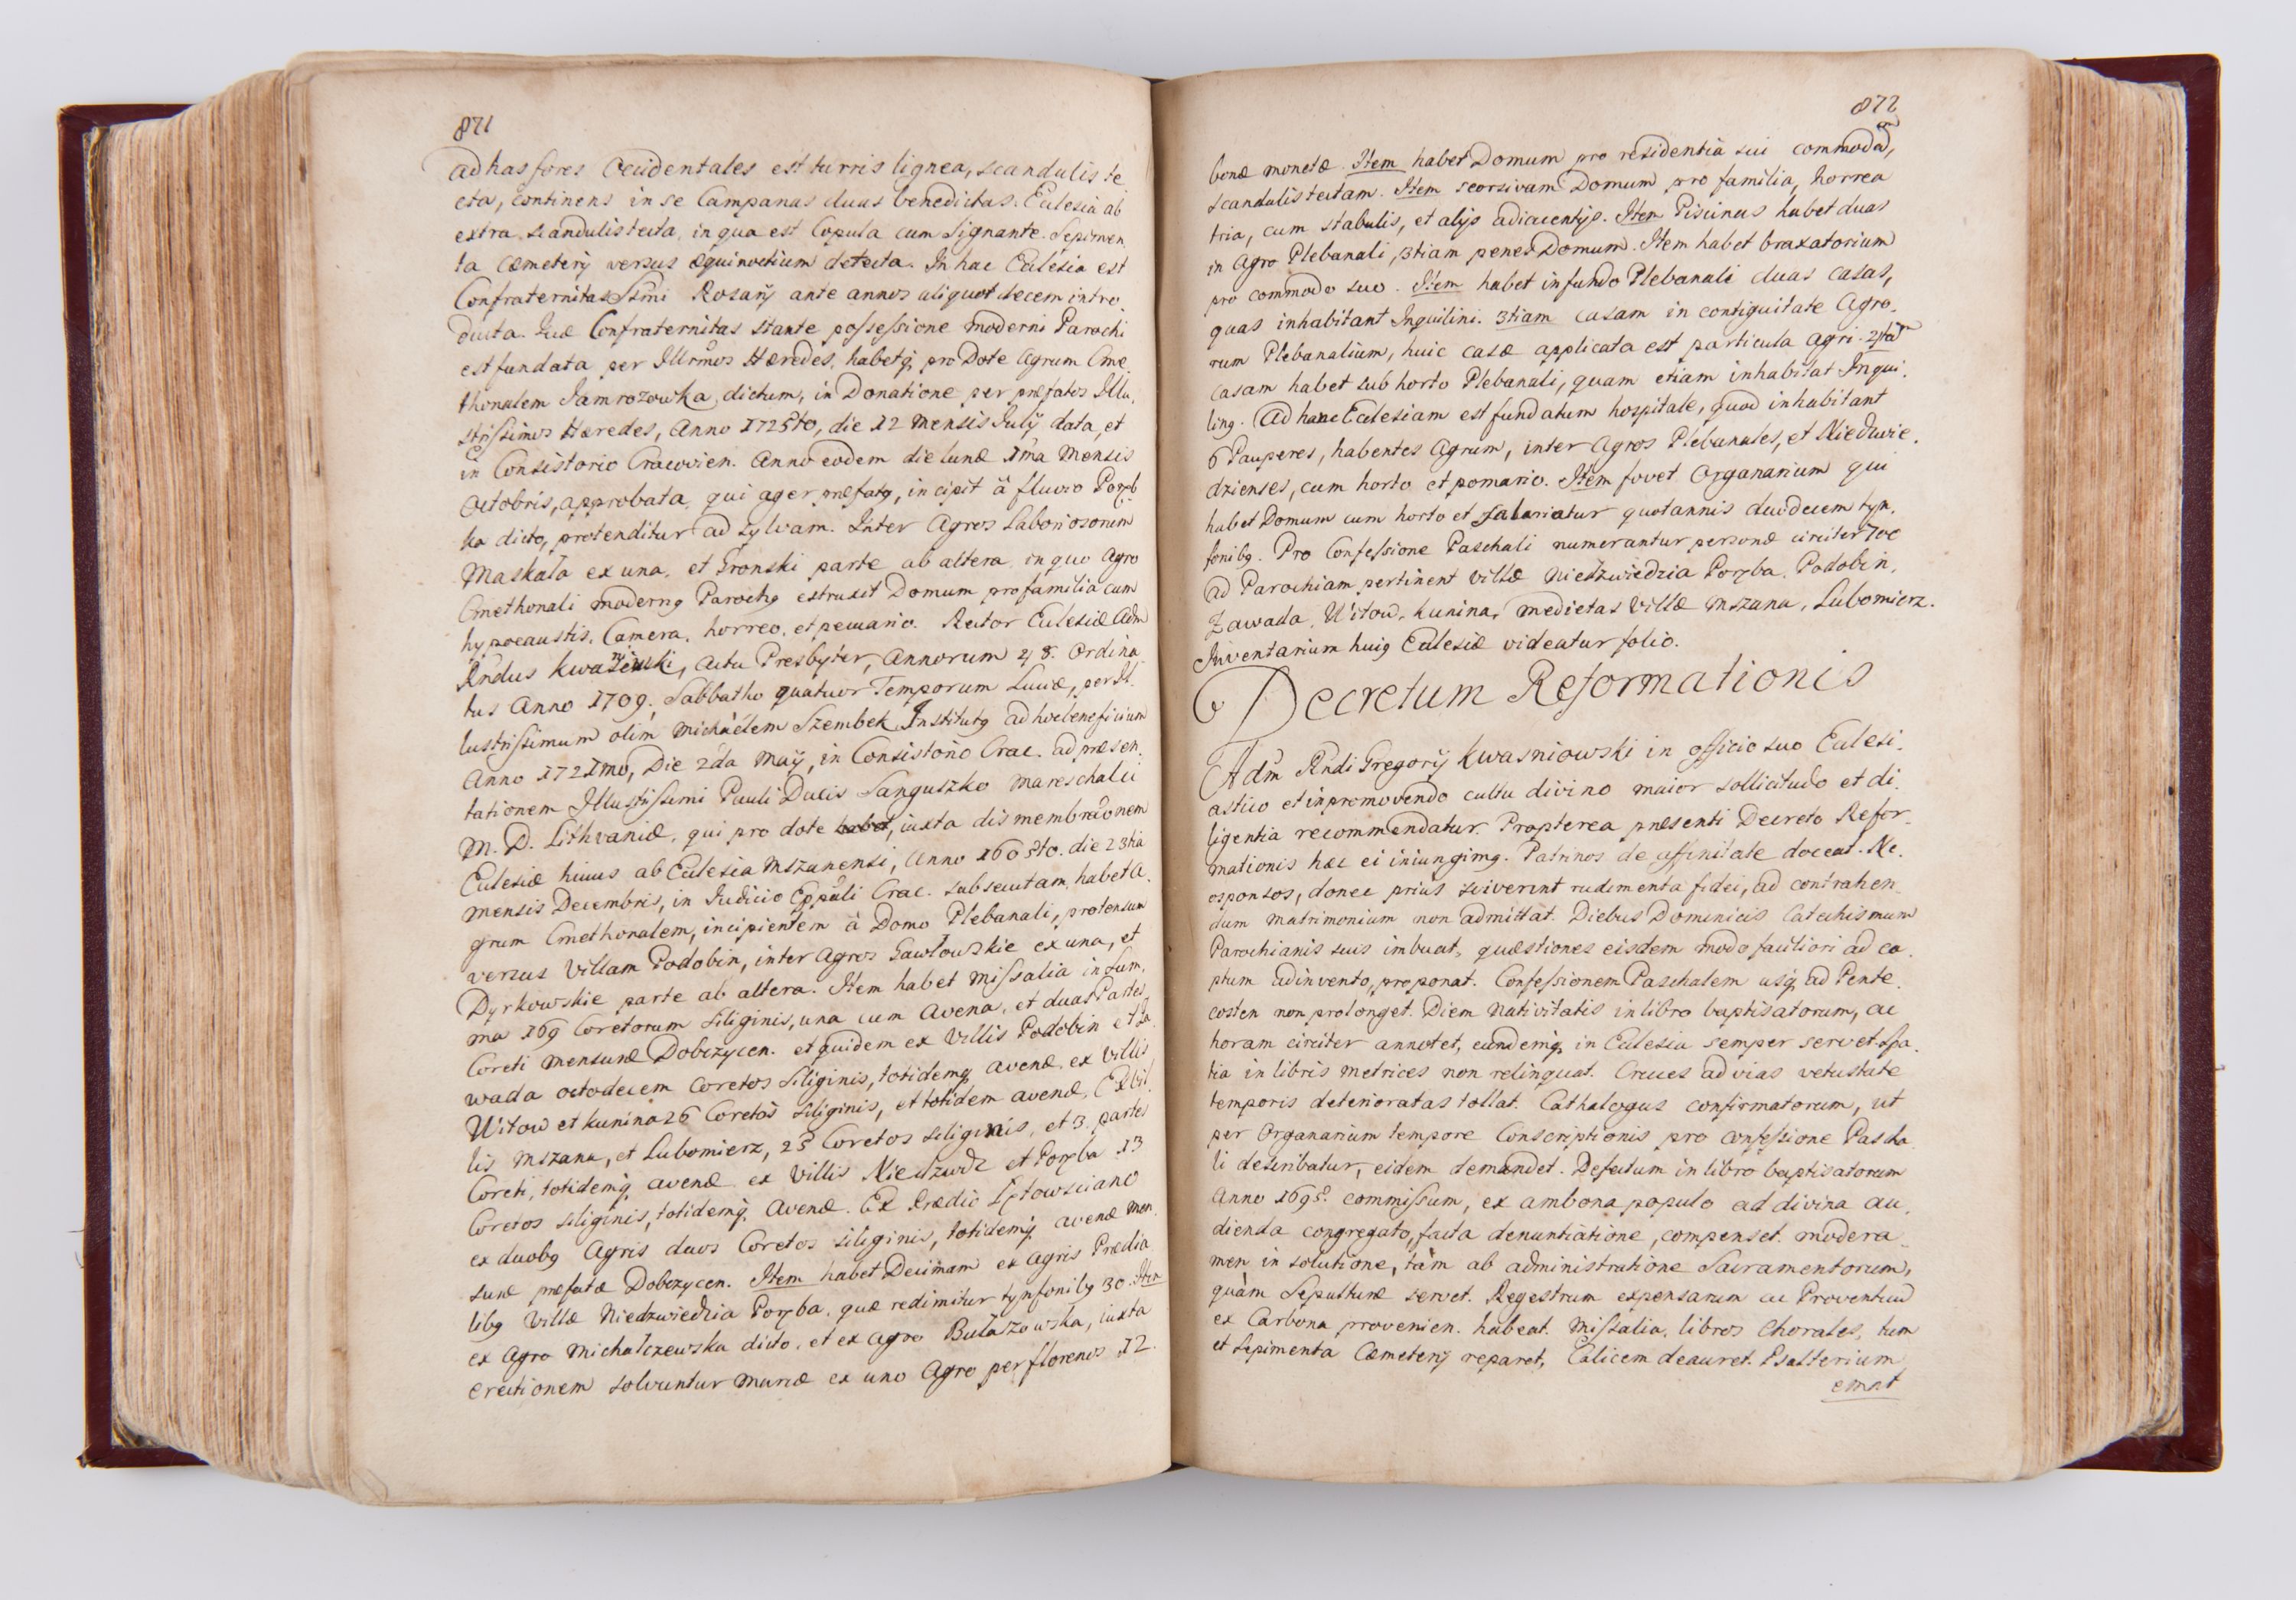 871
ad has fores Occidentales est turris lignea, scandulis te
cta, continens in se Campanas duas benedictas. Eclesia ab
extra scandulis tecta, in qua est Copula cum Signante. Sepimen
ta Cæmeterij versus æquinoctium detecta. In hac Eclesia est
Confraternitas Ssmi Rosarij ante annos aliquot decem intro
ducta. Quæ Confraternitas stante possessione moderni Parochi
est fundata per Illrmos Hæredes, habetq, pro Dote Agrum Cme
thonalem Jamrozowka dictum, in Donatione per præfatos Illu
strissimos Hæredes, Anno 1725to, die 12 Mensis Julij data, et
in Consistorio Cracovien. Anno eodem die lunæ 1ma Mensis
Octobris, approbata, qui ager præfatg, incipit à fluvio Poręb
ka dicto, protenditur ad sylvam. Inter Agros Laboriosorum
Maskała ex una, et Gronski parte ab altera, in quo Agro
Cmethonali moderng Parochg extruxit Domum pro familia cum
hypocaustis, Camera, horreo, et pecuario. Rector Eclesiæ Adm
Rndus Kwasniewski, actu Presbyter, Annorum 48. Ordina
tus Anno 1709, Sabbatho quatuor Temporum Luciæ, per Il
lustrissimum olim Michaëlem Szembek, Institutg ad hoc beneficium
Anno 1721mo, Die 2da Maij, in Consistorio Crac. ad præsen
tationem Illustrissimi Pauli Ducis Sanguszko Mareschalci
M. D. Lithvaniæ, qui pro dote habet, iuxta dismembraõnem
Eclesiæ huius ab Eclesia Mszanensi, Anno 1605to. die 23tia
Mensis Decembris, in Judicio Eppali Crac. subsecutam, habet A
grum Cmethonalem, incipientem à Domo Plebanali, protensum
versus Villam Podobin, inter Agros Gawłowskie ex una, et
Dyrkowskie parte ab altera. Item habet Missalia in sum
ma 169 Coretorum siliginis, una cum Avena, et duas Partes
Coreti mensuræ Dobczycen. et quidem ex Villis Podobin et Za
wada octodecem Coretos Siliginis, totidemq avenæ, ex Villis
Witow et Kunina 26 Coretos siliginis, et totidem avenæ, Ex Vil
lis Mszana, et Lubomierz, 25 Coretos siliginis, et 3. partes
Coreti, totidemq, avenæ ex Villis Niedzwdz et Poręba 13
Coretos siliginis, totidemq. Avenæ. Ex Prædio Łętowsciano
ex duobg Agris duos Coretos siliginis, totidemq avenæ men
suræ præfatæ Dobczycen. Item habet Decimam ex agris Prædia
libg Villæ Niedzwiedzia Poręba, quæ redimitur tynfonibg 30. Item
ex Agro Michalczewska dicto, et ex Agro Bulazowska, iuxta
erectionem solvuntur marcæ ex uno Agro per florenos 12.
872
bonæ monetæ. Item habet Domum pro residentia sui commodam,
scandulis tectam. Item seorsivam Domum pro familia, horrea
tria, cum stabulis, et alijs adiacentijs. Item Piscinas habet duas
in Agro Plebanali, 3tiam penes Domum. Item habet braxatorium
pro commodo suo. Item habet in fundo Plebanali duas casas,
quas inhabitant Inquilini. 3tiam casam in contiguitate Agro
rum Plebanalium, huic casæ applicata est particula agri. 4tam
casam habet sub horto Plebanali, quam etiam inhabitat Inqui
ling. Ad hanc Eclesiam est fundatum hospitale, quod inhabitant
6 Pauperes, habentes Agrum, inter Agros Plebanales, et Niedzwie
dzienses, cum horto et pomario. Item fovet Organarium qui
habet Domum cum horto et salariatur quotannis duodecem tyn
fonibg. Pro Confessione Paschali numerantur personæ circiter 700
ad Parochiam pertinent Villæ Niedzwiedzia Poręba, Podobin,
Zawada, Witow, Kunina, medietas Villæ Mszana, Lubomierz.
Inventarium huig Eclesiæ videatur folio.
Decretum Reformationis
Adm Rndi Gregorij Kwasniowski in officio suo Eclesi
astico et in promovendo cultu divino maior sollicitudo et di
ligentia recommendatur. Propterea præsenti Decreto Refor
mationis hæc ei iniungimg. Patrinos de affinitate doceat. Ne
osponsos, donec prius sciverint rudimenta fidei, ad contrahen
dum matrimonium non admittat. Diebus Dominicis Catechismum
Parochianis suis imbuat, quæstiones eisdem modo faciliori ad ca
ptum adinvento, proponat. Confessionem Paschalem usq, ad Pente
costen non prolonget. Diem Nativitatis in libro baptisatorum, ac
horam circiter annotet, eundemq, in Eclesia semper servet. Spa
tia in libris metrices non relinquat. Cruces ad vias vetustate
temporis deterioratas tollat. Cathalogus confirmatorum, ut
per Organarium tempore Conscriptionis pro confessione Pascha
li describatur, eidem demandet. Defectum in libro baptisatorum
Anno 1695. commissum, ex ambona populo ad divina au
dienda congregato, facta denuntiatione, compenset. modera
men in solutione, tàm ab administratione Sacramentorum,
quàm Sepulturæ servet. Regestrum expensarum ac Proventuum
ex Carbona provenien. habeat. Missalia, libros Chorales, tum
et Sepimenta Cæmeterij reparet, Calicem deauret. Psalterium
emat